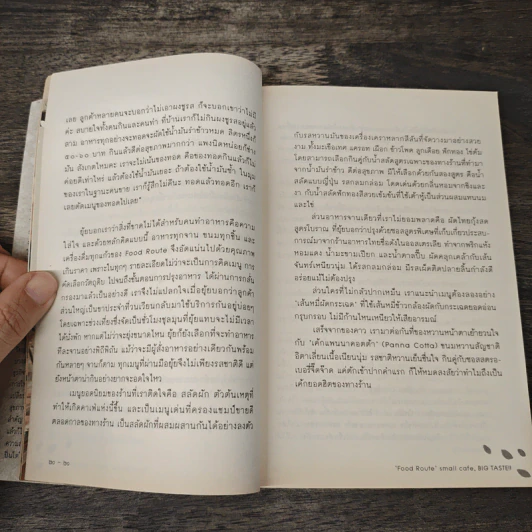 เลย ลูกค้าหลายคนจะบอกว่าไม่เอาผงชูรส ก็จะบอกเขาว่าไม่มี
ค่ะ สบายใจทั้งคนกินและคนทำ ที่บ้านเราก็ไม่กินผงชูรสอยู่แล้ว
สาม อาหารทุกอย่างจะทอดจะผัดใช้น้ำมันรำข้าวหมด ลิตรหนึ่งก็
๕๐-๖๐ บาท กินแล้วดีต่อสุขภาพมากกว่า แพงนิดหน่อยก็ช่าง
มัน สังเกตไหมคะ เราจะไม่เน้นของทอด คือของทอดกินแล้วก็ไม่
ค่อยดีเท่าไหร่ แล้วต้องใช้น้ำมันเยอะ ถ้าต้องใช้น้ำมันซ้ำ ในมุม
ของเราในฐานะคนขาย เราก็รู้สึกไม่ดีนะ ทอดแล้วทอดอีก เราก็
เลยตัดเมนูของทอดไปเลย”
ยุ้ยบอกเราว่าสิ่งที่ขาดไม่ได้สำหรับคนทำอาหารคือความ
ใส่ใจ และด้วยหลักคิดแบบนี้ อาหารทุกจาน ขนมทุกชิ้น และ
เครื่องดื่มทุกแก้วของ Food Route จึงอัดแน่นไปด้วยคุณภาพ
เกินราคา เพราะในทุกๆ รายละเอียดไม่ว่าจะเป็นการคิดเมนู การ
คัดเลือกวัตถุดิบ ไปจนถึงขั้นตอนการปรุงอาหาร ได้ผ่านการกลั่น
กรองมาแล้วเป็นอย่างดี เราจึงไม่แปลกใจเมื่อยุ้ยบอกว่าลูกค้า
ส่วนใหญ่เป็นขาประจำที่วนเวียนกลับมาใช้บริการกันอยู่บ่อยๆ
โดยเฉพาะช่วงเที่ยงซึ่งจัดเป็นชั่วโมงชุลมุนที่ยุ้ยแทบจะไม่มีเวลา
ได้นั่งพัก หากแต่ไม่ว่าจะยุ่งขนาดไหน ยุ้ยก็ยังเลือกที่จะทำอาหาร
ทีละจานอย่างพิถีพิถัน แม้ว่าจะมีผู้สั่งอาหารอย่างเดียวกันพร้อม
กันหลายๆ จานก็ตาม ทุกเมนูที่ผ่านมือยุ้ยจึงไม่เพียงรสชาติดี แต่
ยังหน้าตาน่ากินอย่างยากจะอดใจไหว
เมนูยอดนิยมของร้านที่เราติดใจคือ สลัดผัก ตัวต้นเหตุที่
ทำให้เกิดคาเฟ่แห่งนี้ขึ้น และเป็นเมนูเด่นที่ครองแชมป์ขายดี
ตลอดกาลของทางร้าน เป็นสลัดผักที่ผสมผสานกันได้อย่างลงตัว
กับรสหวานมันของเครื่องเคราหลากสีสันที่จัดวางมาอย่างสวย
งาม ทั้งมะเขือเทศ แครอท เผือก ข้าวโพด ลูกเดือย ฟักทอง ไข่ต้ม
โดยสามารถเลือกกินคู่กับน้ำสลัดสูตรเฉพาะของทางร้านที่ทำมา
จากน้ำมันรำข้าว ดีต่อสุขภาพ มีให้เลือกด้วยกันสองสูตร คือน้ำ
สลัดแบบญี่ปุ่น รสกลมกล่อม โดดเด่นด้วยกลิ่นหอมจากขิงและ
งา กับน้ำสลัดฟักทองสีสวยเข้มข้นที่ใช้เต้าหู้เป็นส่วนผสมแทนนม
และไข่
ส่วนอาหารจานเดียวที่เราไม่ยอมพลาดคือ ผัดไทยกุ้งสด
สูตรโบราณ ที่ยุ้ยบอกว่าปรุงด้วยซอสสูตรพิเศษที่เก็บเกี่ยวประสบ-
การณ์มาจากร้านอาหารไทยชื่อดังในออสเตรเลีย ทำจากพริกแห้ง
หอมแดง น้ำมะขามเปียก และน้ำตาลปี๊บ ผัดคลุกเคล้ากับเส้น
จันทร์เหนียวนุ่ม ได้รสกลมกล่อม มีรสเผ็ดติดปลายลิ้นกำลังดี
อร่อยแม้ไม่ต้องปรุง
ส่วนใครที่ไม่กลัวปากเหม็น เราแนะนำเมนูต้องลองอย่าง
“เส้นหมี่ผัดกระเฉด” ที่ใช้เส้นหมี่ข้าวกล้องผัดกับกระเฉดยอดอ่อน
กรุบกรอบ ไม่มีก้านไหนเหนียวให้เสียอารมณ์
เสร็จจากของคาว เรามาต่อกันที่ของหวานหน้าตาเย้ายวนใจ
กับ “เค้กแพนนาคอตต้า” (Panna Cotta) ขนมหวานสัญชาติ
อิตาเลียนเนื้อเนียนนุ่ม รสชาติหวานเย็นชื่นใจ กินคู่กับซอสสตรอ-
เบอรี่จี๊ดจ๊าด แค่ตักเข้าปากคำแรก ก็ให้หมดสงสัยว่าทำไมถึงเป็น
เค้กยอดฮิตของทางร้าน
“Food Route” small cafe, BIG TASTE!!